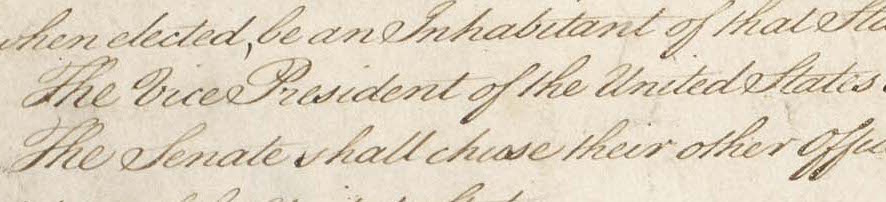 when elected, be an Inhabitant of that
The Vice President of the United States
The Senate shall chuse their other